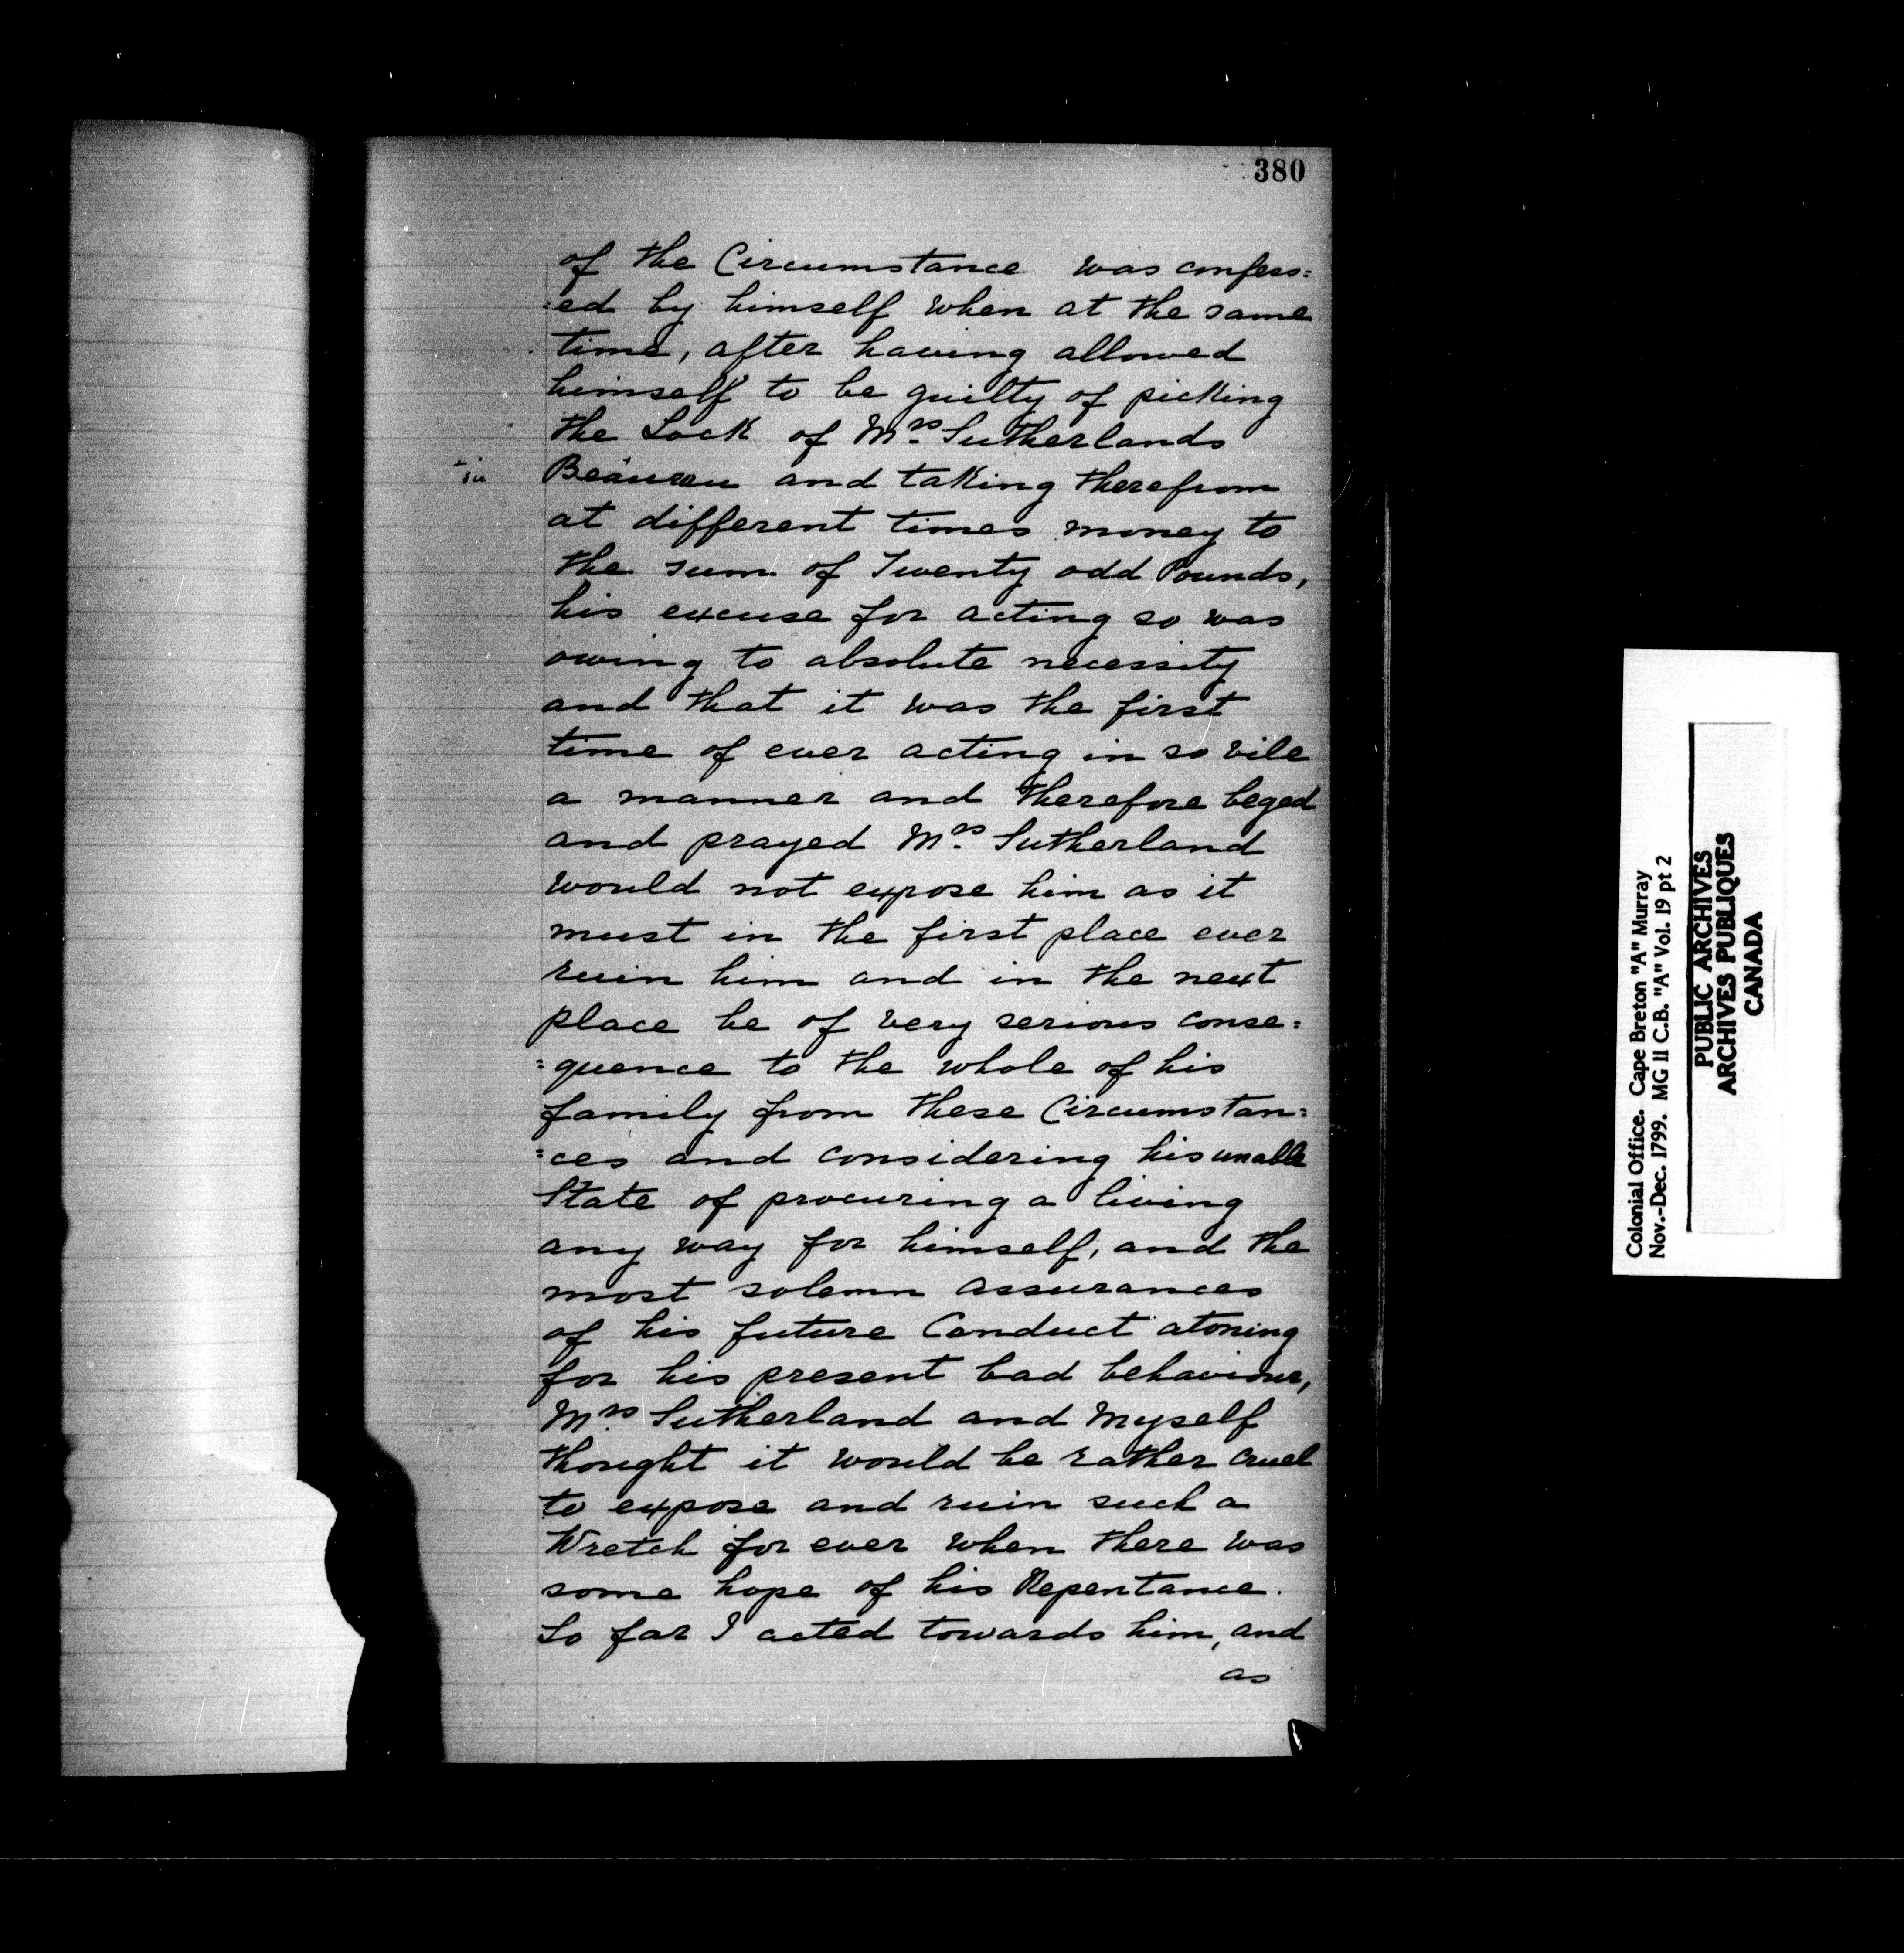 380
of the Circumstance was confess=
=ed by himself when at the same
time, after having allowed
himself to be guilty of picking
the Lock of Mrs. Sutherlands
Beaureau and taking therefrom
at different times money to
the sum of Twenty odd Pounds,
his excuse for acting so was
owing to absolute necessity
and that it was the first
time of ever acting in so vile
a manner and therefore beged
and prayed Mrs. Sutherland
would not expose him as it
must in the first place ever
ruin him and in the next
place be of very serious conse=
=quence to the whole of his
family from these Circumstan=
=ces and considering his unable
State of procuring a living
any way for himself, and the
most solemn assurances
of his future Conduct atoning
for his present bad behaviour,
Mrs. Sutherland and Myself
thought it would be rather cruel
to expose and ruin such a
Wretch for ever when there was
some hope of his Repentance.
So far I acted towards him, and
as
Colonial Office. Cape Breton "A" Murray
Nov.-Dec. 1799. MG 11 C.B. "A" Vol. 19 pt 2
PUBLIC ARCHIVES
ARCHIVES PUBLIQUES
CANADA